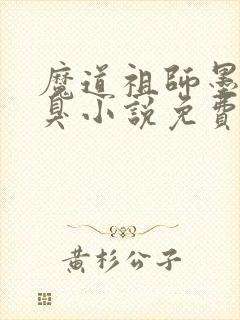 魔道祖師墨
臭小說免費
黃杉公子